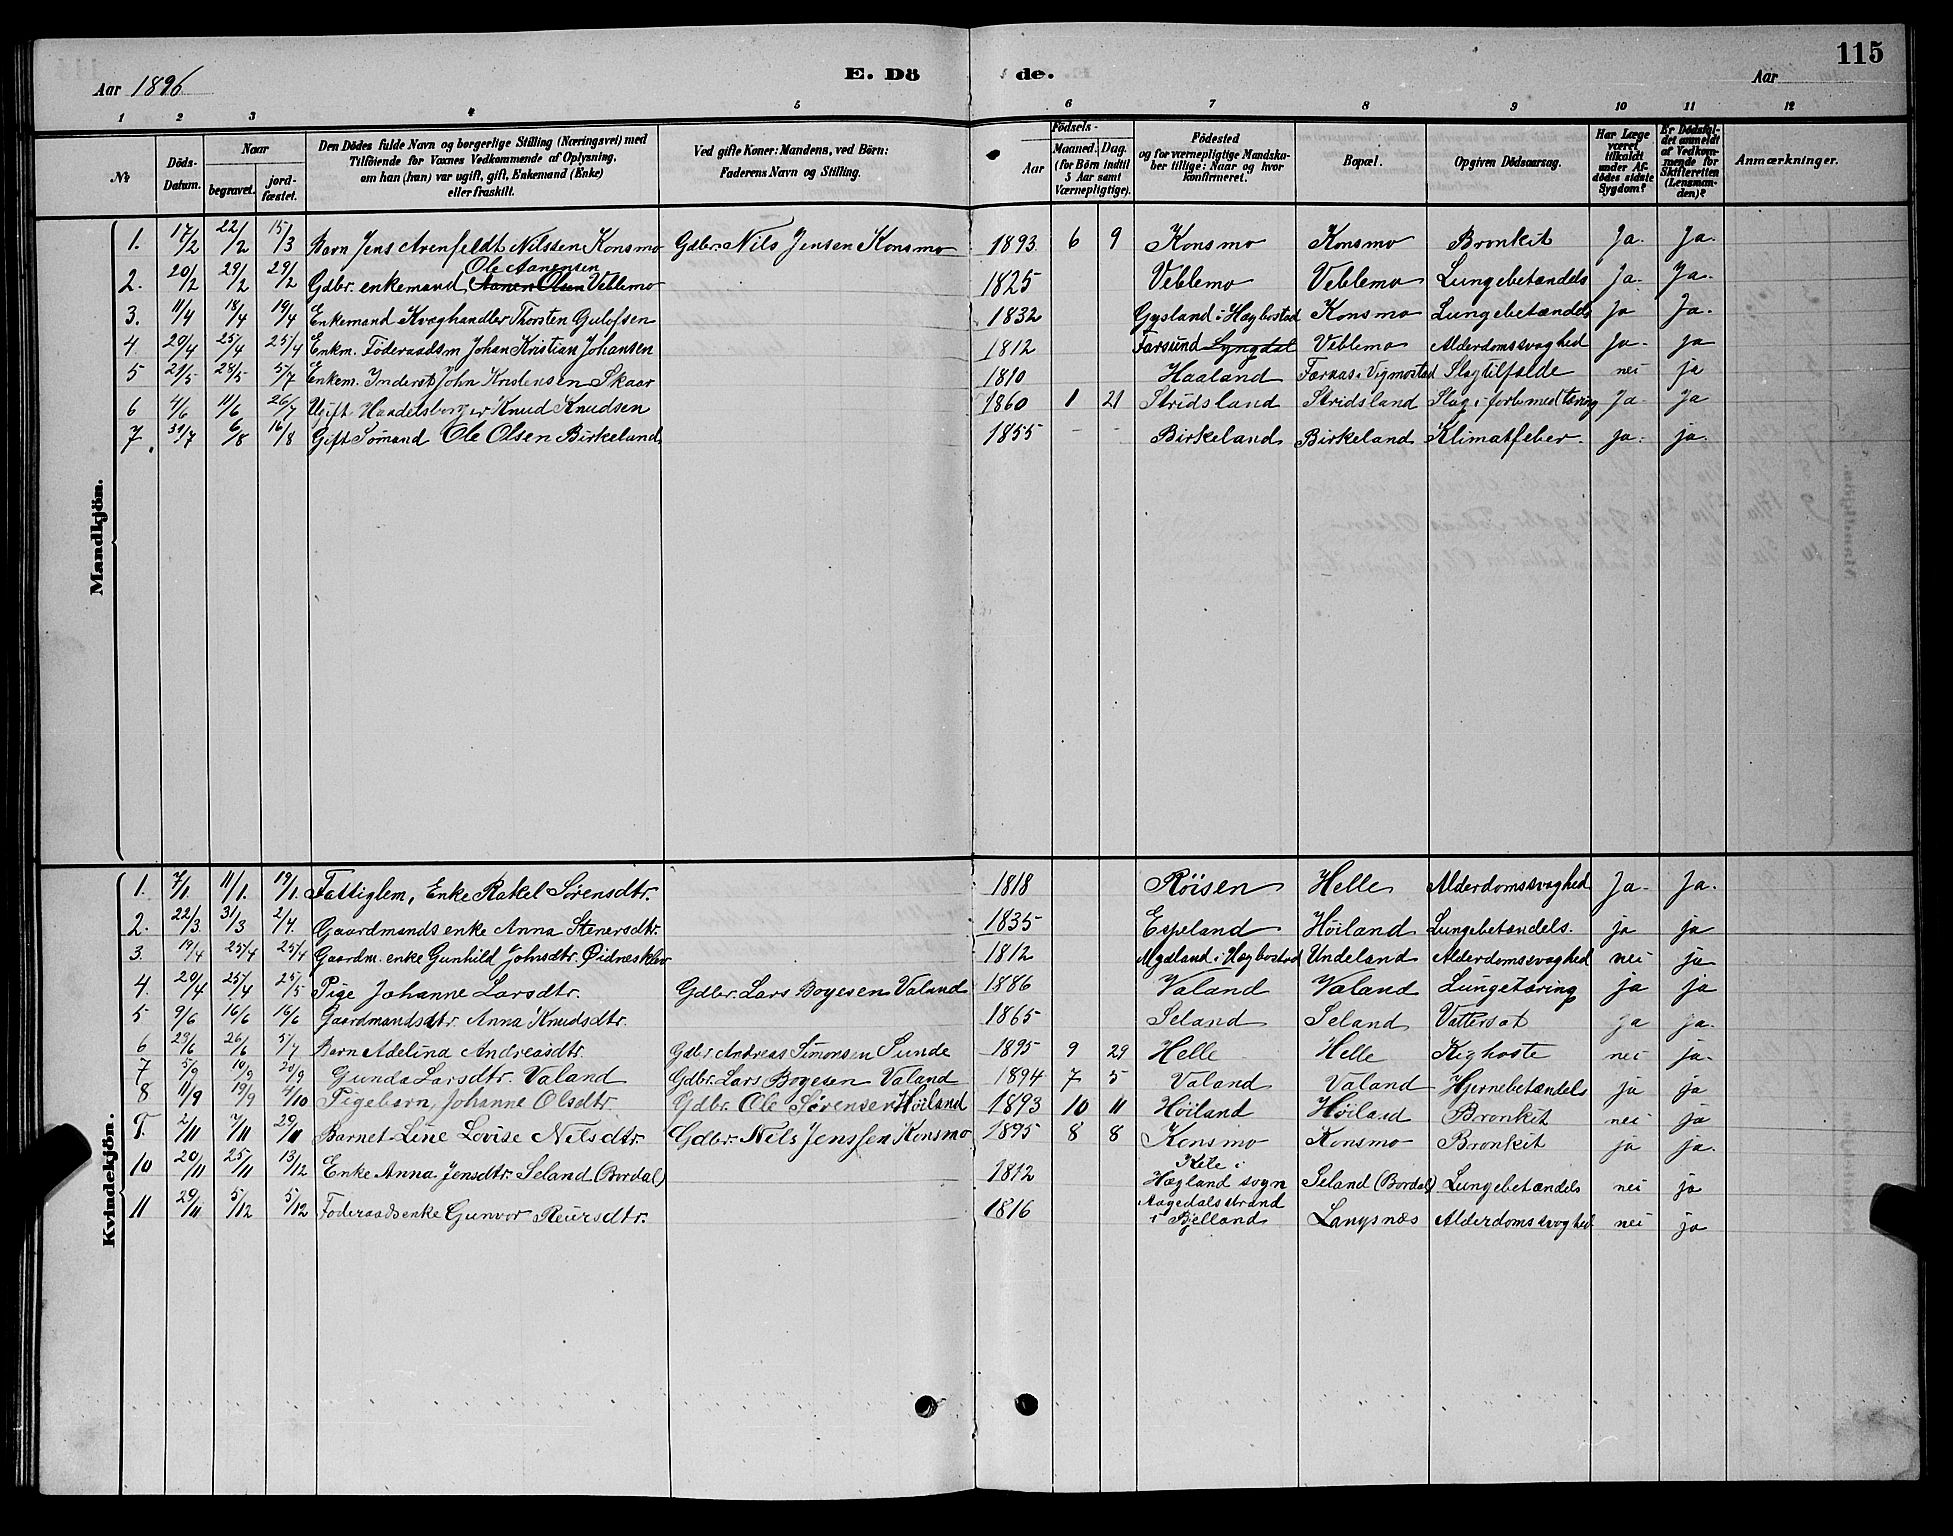 115
Aar 1896 E. Dö de. Aar
1 2 3 4 5 6 7 8 9 10 11 12
№ Döds-Datum. Naar begravet. jord-fæstet. Den Dödes fulde Navn og borgerlige Stilling (Næringsvei) med Tilföiende for Voxnes Vedkommende af Oplysning, om han (hun) var ugift, gift, Enkemand (Enke) eller fraskilt. Ved gifte Koner: Mandens, ved Börn: Faderens Navn og Stilling. Födsels- Aar Maaned. Dag. (for Börn indtil 3 Aar samt Værnepligtige). Födested og for værnepligtige Mandskaber tillige: Naar og hvor konfirmeret. Bopæl. Opgiven Dödsaarsag. Har Læge været tilkaldt under Afdödes sidste Sygdom? Er Dödsfaldet anmeldt af Vedkommende for Skifteretten (Lensmanden)? Anmærkninger.
Mandkjön.
1. 17/2 22/2 15/3 Barn Jens Arenfeldt Nilssen Konsmo Gdbr. Nils Jensen Konsmo 1893 6 9 Konsmo Konsmo Bronkit Ja. Ja.
Ole Aanensen
2. 20/2 29/2 29/2 Gdbr. enkemand Aanen Olsen Veblemo 1825 Veblemo Veblemo Lungebetændels Ja. Ja.
3. 11/4 18/4 19/4 Enkemand Kvæghandler Thorsten Gulofsen 1832 Gysland i Hægbostad Konsmo Lungebetændels Ja Ja.
4. 20/4 25/4 25/4 Enkm. Föderaadsm Johan Kristian Johansen 1812 Farsund Lyngdal Veblemo Alderdomssvaghed Ja. Ja
5 21/5 28/5 5/7 Enkem. Inderst John Kristensen Skaar 1810 Haaland Færaas i Vigmostad Slagtilfælde nei ja
6 4/6 11/6 26/7 Ugift Handelsborger Knud Knudsen 1860 1 21 Stridsland Stridsland Slag i forb. med tæring Ja. Ja
7. 31/7 6/8 16/8 Gift Sömand Ole Olsen Birkeland 1855 - - Birkeland Birkeland Klimatfeber. ja. ja.
Kvindekjön.
1. 7/1 11/1. 19/1. Fattiglem, Enke Rakel Sørensdtr. 1818 Röisen Helle Alderdomssvaghed Ja. Ja.
2. 22/3 31/3 2/4. Gaardmands enke Anna Stenersdtr. 1835 Espeland Höiland Lungebetændels. ja ja
3. 19/4 25/4 25/4 Gaardm. enke Gunhild Johnsdtr. Øidnesklev 1812 Mydland i Hægbostad Undeland Alderdomssvaghed nei ja
4. 20/4 25/4 25/5 Pige Johanne Larsdtr. Gdbr. Lars Boyesen Valand 1886 Valand Valand Lungetæring ja ja
5 9/6 16/6 16/6 Gaardmandsdtr. Anna Knudsdtr. 1865 Seland Seland Vattersot ja ja.
6 23/6 26/6 5/7 Barn Adelina Andreasdtr. Gdbr. Andreas Simonsen Sunde 1895 9 29 Helle Helle Kighoste nei ja.
7 5/9 10/9 20/9 Gunda Larsdtr. Valand Gdbr. Lars Boyesen Valand 1894 7 5 Valand Valand Hjernebetændels ja ja
8 11/9 19/9 4/10 Pigebarn, Johanne Olsdtr. Gdbr. Ole Sørensen Höiland 1893 10 11 Höiland Höiland Bronkit nei ja
9. 2/11 7/11 29/11 Barnet Line Lovise Nilsdtr. Gdbr. Nils Jenssen Konsmo 1895 8 8 Konsmo Konsmo Bronkit ja ja.
10 20/11 25/11 13/12 Enke Anna Jensdtr. Seland (Bordal) 1812 Kile i Hægland sogn Seland (Bordal) Lungebetændels nei ja
11 29/11 5/12 5/12 Föderaadsenke Gunvor Reiersdtr. 1816 Aagedalsstrand i Bjelland Langnæs Alderdomssvaghed nei ja